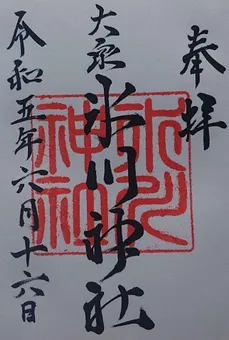 奉拝
大泉
氷川神社
氷川
神社
令和五年六月十六日